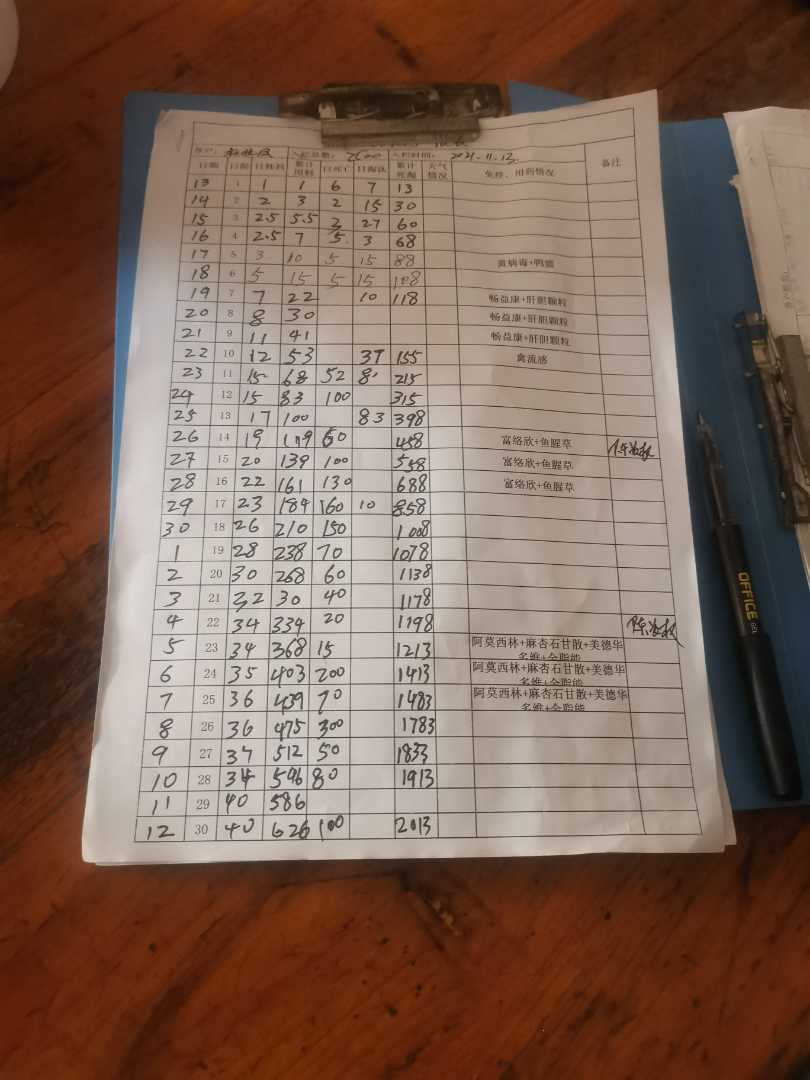 入栏总数: 2600 入栏时间: 2021.11.13
日期 日龄 日耗料 累计用料 日死亡 日淘汰 累计死淘 天气情况 免疫、用药情况 备注
13 1 1 1 6 7 13
14 2 2 3 2 15 30
15 3 2.5 5.5 3 27 60
16 4 2.5 7 5 3 68
17 5 3 10 5 15 88 黄病毒+鸭瘟
18 6 5 15 5 15 108
19 7 7 22 10 118 畅益康+肝胆颗粒
20 8 8 30 畅益康+肝胆颗粒
21 9 11 41 畅益康+肝胆颗粒
22 10 12 53 37 155 禽流感
23 11 15 68 52 8 215
24 12 15 83 100 315
25 13 17 100 83 398
26 14 19 119 60 458 富络欣+鱼腥草
27 15 20 139 100 558 富络欣+鱼腥草
28 16 22 161 130 688 富络欣+鱼腥草
29 17 23 184 160 10 858
30 18 26 210 150 1008
1 19 28 238 70 1078
2 20 30 268 60 1138
3 21 32 30 40 1178
4 22 34 334 20 1198
5 23 34 368 15 1213 阿莫西林+麻杏石甘散+美德华
多维+全脂能
6 24 35 403 200 1413 阿莫西林+麻杏石甘散+美德华
多维+全脂能
7 25 36 439 70 1483 阿莫西林+麻杏石甘散+美德华
多维+全脂能
8 26 36 475 300 1783
9 27 37 512 50 1833
10 28 34 546 80 1913
11 29 40 586
12 30 40 626 100 2013
OFFICE GEL